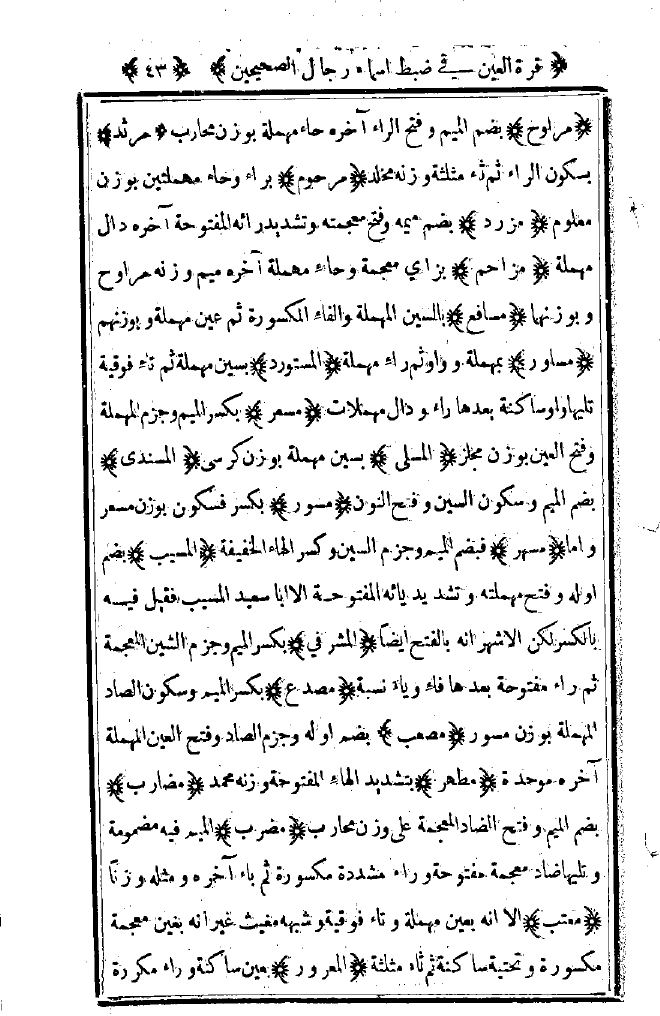 ﴿ قرة العين في ضبط اسماء رجال الصحيحين ﴾ ﴿ ٤٣ ﴾
﴿ مراوح ﴾ بضم الميم وفتح الراء آخره حاء مهملة بوزن محارب ﴿ مرثد ﴾
بسكون الراء ثم ثاء مثلثة وزنه مخلد ﴿ مرحوم ﴾ براء وحاء مهملتين بوزن
معلوم ﴿ مزرد ﴾ بضم ميمه وفتح معجمته وتشديد رائه المفتوحة آخره دال
مهملة ﴿ مزاحم ﴾ بزاي معجمة وحاء مهملة آخره ميم وزنه مراوح
وبوزنها ﴿ مسافع ﴾ بالسين المهملة والفاء المكسورة ثم عين مهملة وبوزنهم
﴿ مساور ﴾ بمهملة وواو ثم راء مهملة ﴿ المستورد ﴾ بسين مهملة ثم تاء فوقية
تليها واو ساكنة بعدها راء ودال مهملات ﴿ مسعر ﴾ بكسر الميم وجزم المهملة
وفتح العين بوزن مجلز ﴿ المسلى ﴾ بسين مهملة بوزن كرسى ﴿ المسندى ﴾
بضم الميم وسكون السين وفتح النون ﴿ مسور ﴾ بكسر فسكون بوزن مسعر
واما ﴿ مسهر ﴾ فبضم الميم وجزم السين وكسر الهاء الخفيفة ﴿ المسيب ﴾ بضم
اوله وفتح مهملته وتشديد يائه المفتوحة الا ابا سعيد المسيب فقيل فيه
بالكسر لكن الاشهر انه بالفتح ايضاً ﴿ المشرفي ﴾ بكسر الميم وجزم الشين المعجمة
ثم راء مفتوحة بعدها فاء وياء نسبة ﴿ مصدع ﴾ بكسر الميم وسكون الصاد
المهملة بوزن مسور ﴿ مصعب ﴾ بضم اوله وجزم الصاد وفتح العين المهملة
آخره موحدة ﴿ مطهر ﴾ بتشديد الهاء المفتوحة وزنه محمد ﴿ مضارب ﴾
بضم الميم وفتح الضاد المعجمة على وزن محارب ﴿ مضرب ﴾ الميم فيه مضمومة
وتليها ضاد معجمة مفتوحة وراء مشددة مكسورة ثم باء آخره ومثله وزناً
﴿ معتب ﴾ الا انه بعين مهملة وتاء فوقية وشبهه مغيث غير انه بغين معجمة
مكسورة وتحتية ساكنة ثم ثاء مثلثة ﴿ المعرور ﴾ بعين ساكنة وراء مكررة